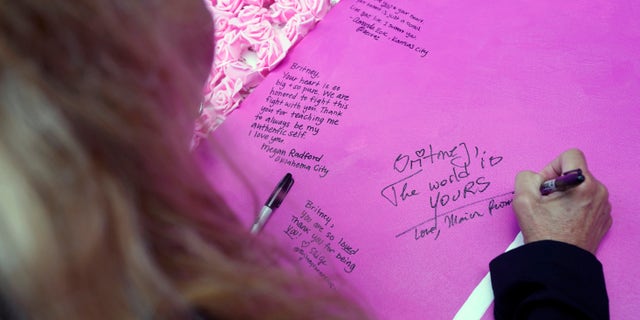 your heart
Live your
Kansas City
Britney,
Your heart is so
big + so pure. We are
honored to fight this
fight with you. Thank
you for teaching me
to always be my
authentic self.
I love you
Megan Radford
Oklahoma City
Britney,
You are so loved
Thank you for being
You!
Britney,
The world is
YOURS
Love,